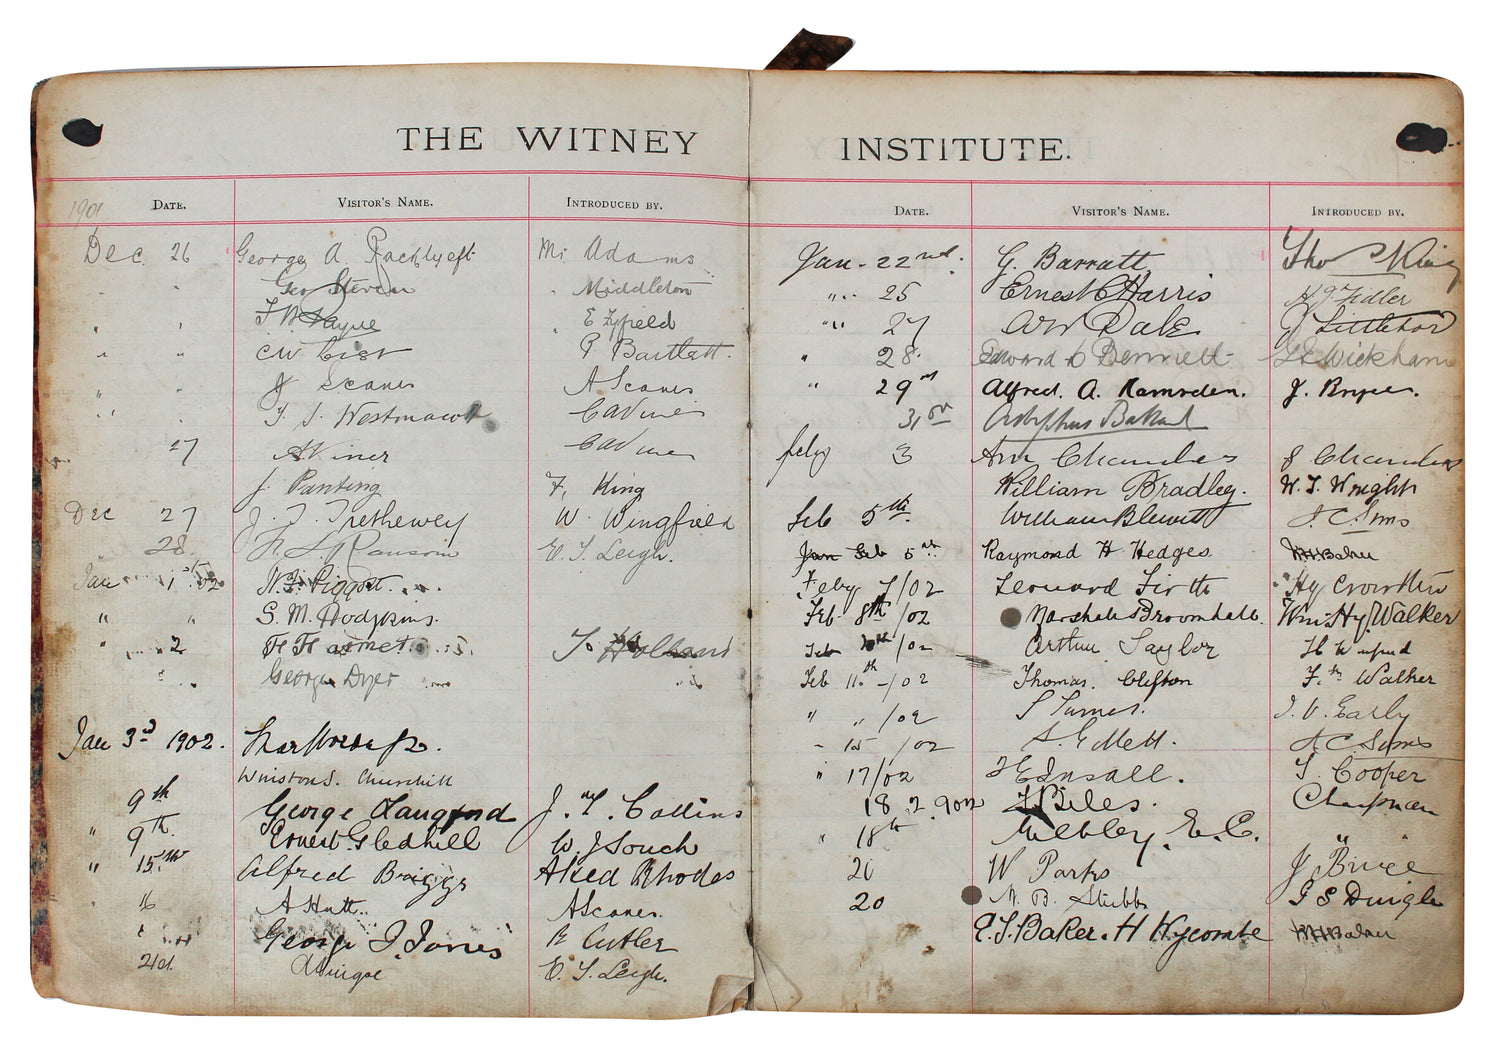 THE WITNEY INSTITUTE.
1901 DATE. VISITOR'S NAME. INTRODUCED BY.
Dec 26 George A. Mr Adams
" " Geo Steven " Middleton
" " T W Payne " E Fyfield
" " CW List P Bartlett.
" " J Scanes A Scanes
" " T. J. Westmacott CAViner
27 A Viner CAViner
J. Panting F. King
Dec 27 J. T. Trethewey W. Wingfield
" 28. H L Ransom E. T. Leigh.
Jan 1st 02 W. F. Piggott
" " S. M. Hodgkins.
" 2 Holland
" " George Dyer "
Jan 3rd 1902.
Winston S. Churchill
9th George Langford J. T. Collins
" 9th. Ernest Gledhill W. J Souch
" 15th Alfred Briggs Alfred Rhodes
" 16 A Hutt. A Scanes.
George J. Jones R Cutler
21st E. T. Leigh.
DATE. VISITOR'S NAME. INTRODUCED BY.
Jan - 22nd. G. Barratt Tho King
" 25 Ernest C Harris H J Fidler
" 27 AW Dale
" 28. Edward C Bennett Wickham
" 29th Alfred. A. Ramsden. J. Bryan.
31st Adolphus Ballard
Feby 3 Ann Chambers J Chambers
William Bradley. W. T. Wright
Feb 5th. William Blewitt A. C. Sims
Jan Feb 5th Raymond H Hedges W H Baker
Feby 7/02 Leonard Firth Hy Crowther
Feb. 8th/02 Marshall Broomhall. Wm. Hy. Walker
Feb 10th/02 Arthur Taylor
Feb 11th-/02 Thomas. Clifton F. Walker
" " /02 S James. J. V. Early
- 15 /02 A C Sims
" 17/02 H E Insall. T. Cooper
18 2 902 Biles. Chapman
" 18th Melbley. E. C. "
20 W Parks J Bruce
20 W. B. Stubbs G S Dingle
E. T. Baker. H Wycombe W H Baker